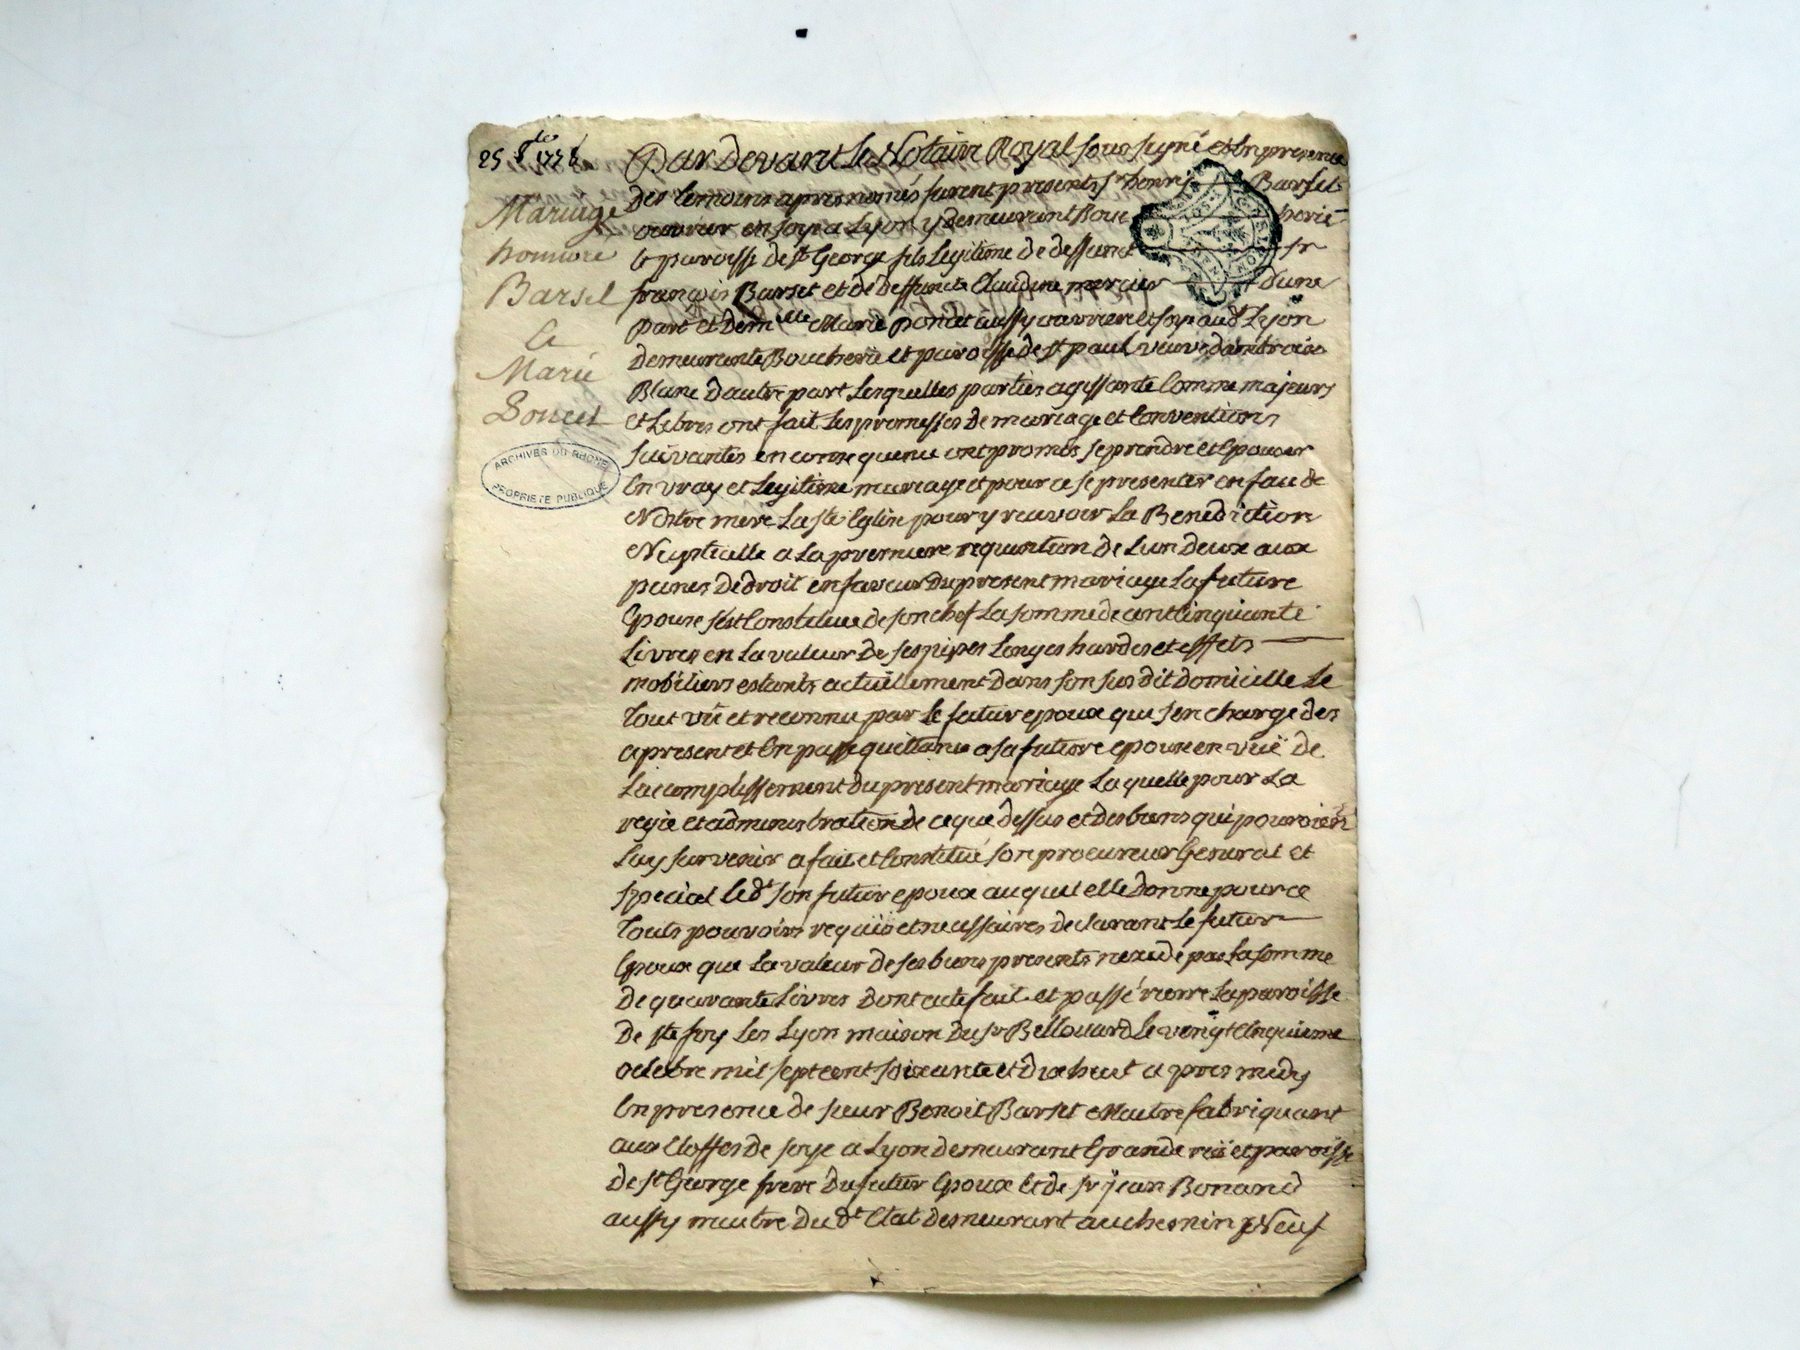 25 8bre 1778
Mariage
honnoré
Barset
Et
Marie
Poncet
ARCHIVES DU RHONE
PROPRIETE PUBLIQUE
Par Devant Le Notaire Royal sous signé et En presence
Des temoins apres només furent presents Sr henry Barset
ouvrier en soye a Lyon y demeurant Bouc herie
et paroisse de St George fils Legitime de deffunct sr
françois Barset et de deffuncte Claudine mercier D'une
part et Demlle Marie poncet aussy ouvriere en soye aud Lyon
demeurante Boucherie et paroisse de St paul veuve d'antoine
Blanc D'autre part Lesquelles parties agissante Comme majeurs
et Libres ont fait Les promesses De mariage et Conventions
suivantes en consequence ont promis se prendre et Epouser
En vray et Legitime mariage et pour ce se presenter en face de
Nostre mere La Ste Eglise pour y recevoir La Benediction
Nuptialle a La premiere requisition de L'un Deux aux
peines De droit en faveur Du present mariage La future
Epouse s'est Constituée de son chef La somme de cent Cinquante
Livres en La valeur De ses nipes Linges hardes et effets
mobiliers estants actuellement Dans son sus dit Domicille Le
Tout vü et reconnu par Le futur epoux qui s'en charge des
apresent et En passe quittance a sa future epouse en vuë de
L'accomplissement du present mariage La quelle pour La
regie et administration de ce que dessus et des biens qui pouroient
Luy survenir a fait et Constitué son procureur General et
special Led. son futur epoux auquel elle donne pour ce
Touts pouvoirs requis et necessaires declarant Le futur
Epoux que La valeur de ses biens presents n'exede pas La somme
De quarante Livres Dont acte fait et passé riere La paroisse
De Ste foy Les Lyon maison Du sr Bellouard Le vingt Cinquieme
octobre mil sept cent soixante et Dix huit a pres midy
En presence de sieur Benoit Barset Maitre fabriquant
aux Etoffes de soye a Lyon demeurant Grande ruë et paroisse
de St George frere Du futur Epoux et de sr jean Bonand
aussy maitre Du dt Etat demeurant au chemin Neuf